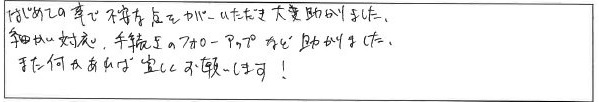 はじめての事で不安な点をカバーいただき大変助かりました。
細かい対応、手続きのフォローアップなど助かりました。
また何かあれば宜しくお願いします!